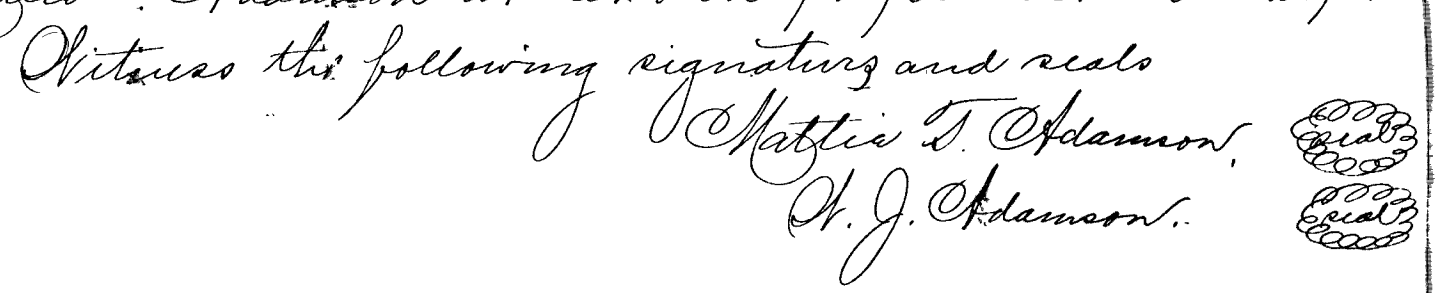 Adamson
Witness the following signatures and seals
Mattie T. Adamson. seal
W. J. Adamson. seal